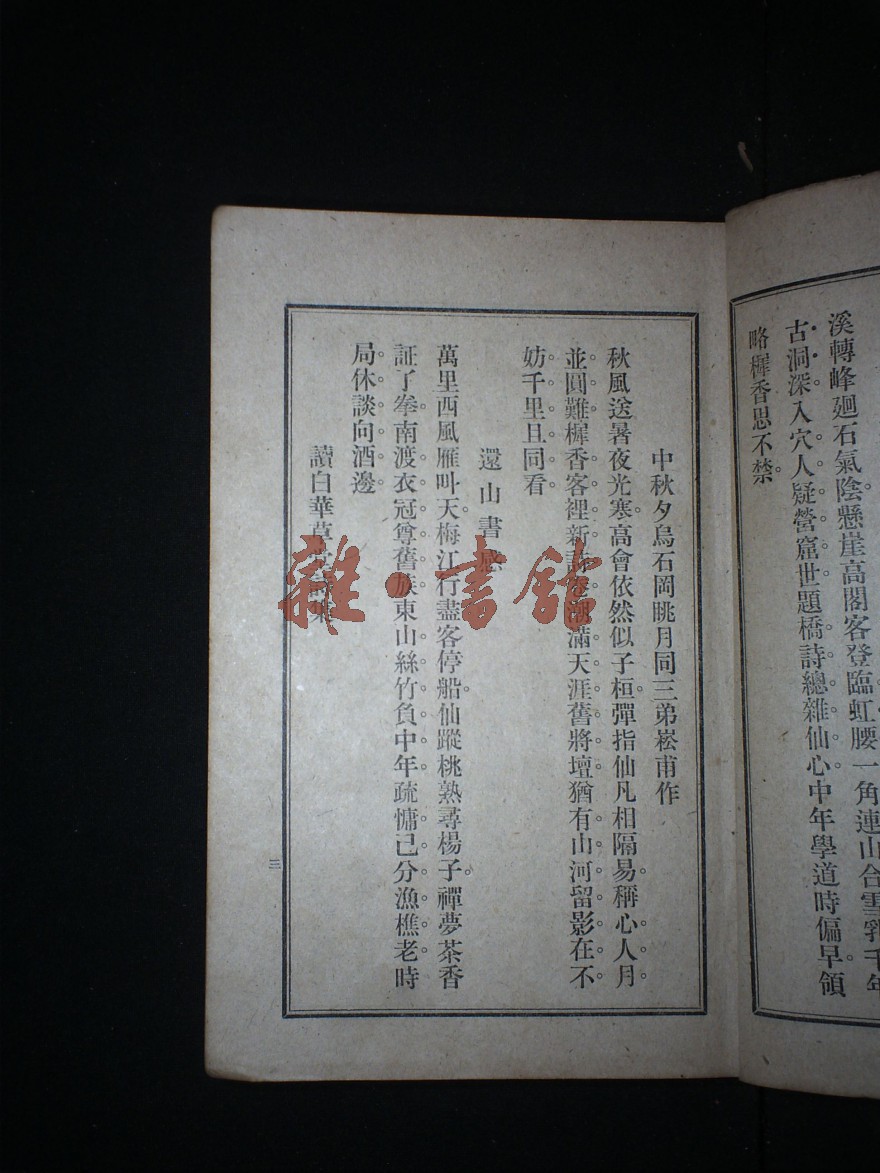 溪轉峰廻石氣陰懸崖高閣客登臨虹腰一角連山合雪乳千年
古洞深入穴人疑營窟世題橋詩總雜仙心中年學道時偏早領
略樨香思不禁
中秋夕烏石岡眺月同三弟崧甫作
秋風送暑夜光寒高會依然似子桓彈指仙凡相隔易稱心人月
並圓難樨香客裡新詩潮滿天涯舊將壇猶有山河留影在不
妨千里且同看
還山書感
萬里西風雁叫天梅江行盡客停船仙蹤桃熟尋楊子禪夢茶香
証了拳南渡衣冠尊舊族東山絲竹負中年疏慵已分漁樵老時
局休談向酒邊
讀白華草堂詩集
三
雜·書館